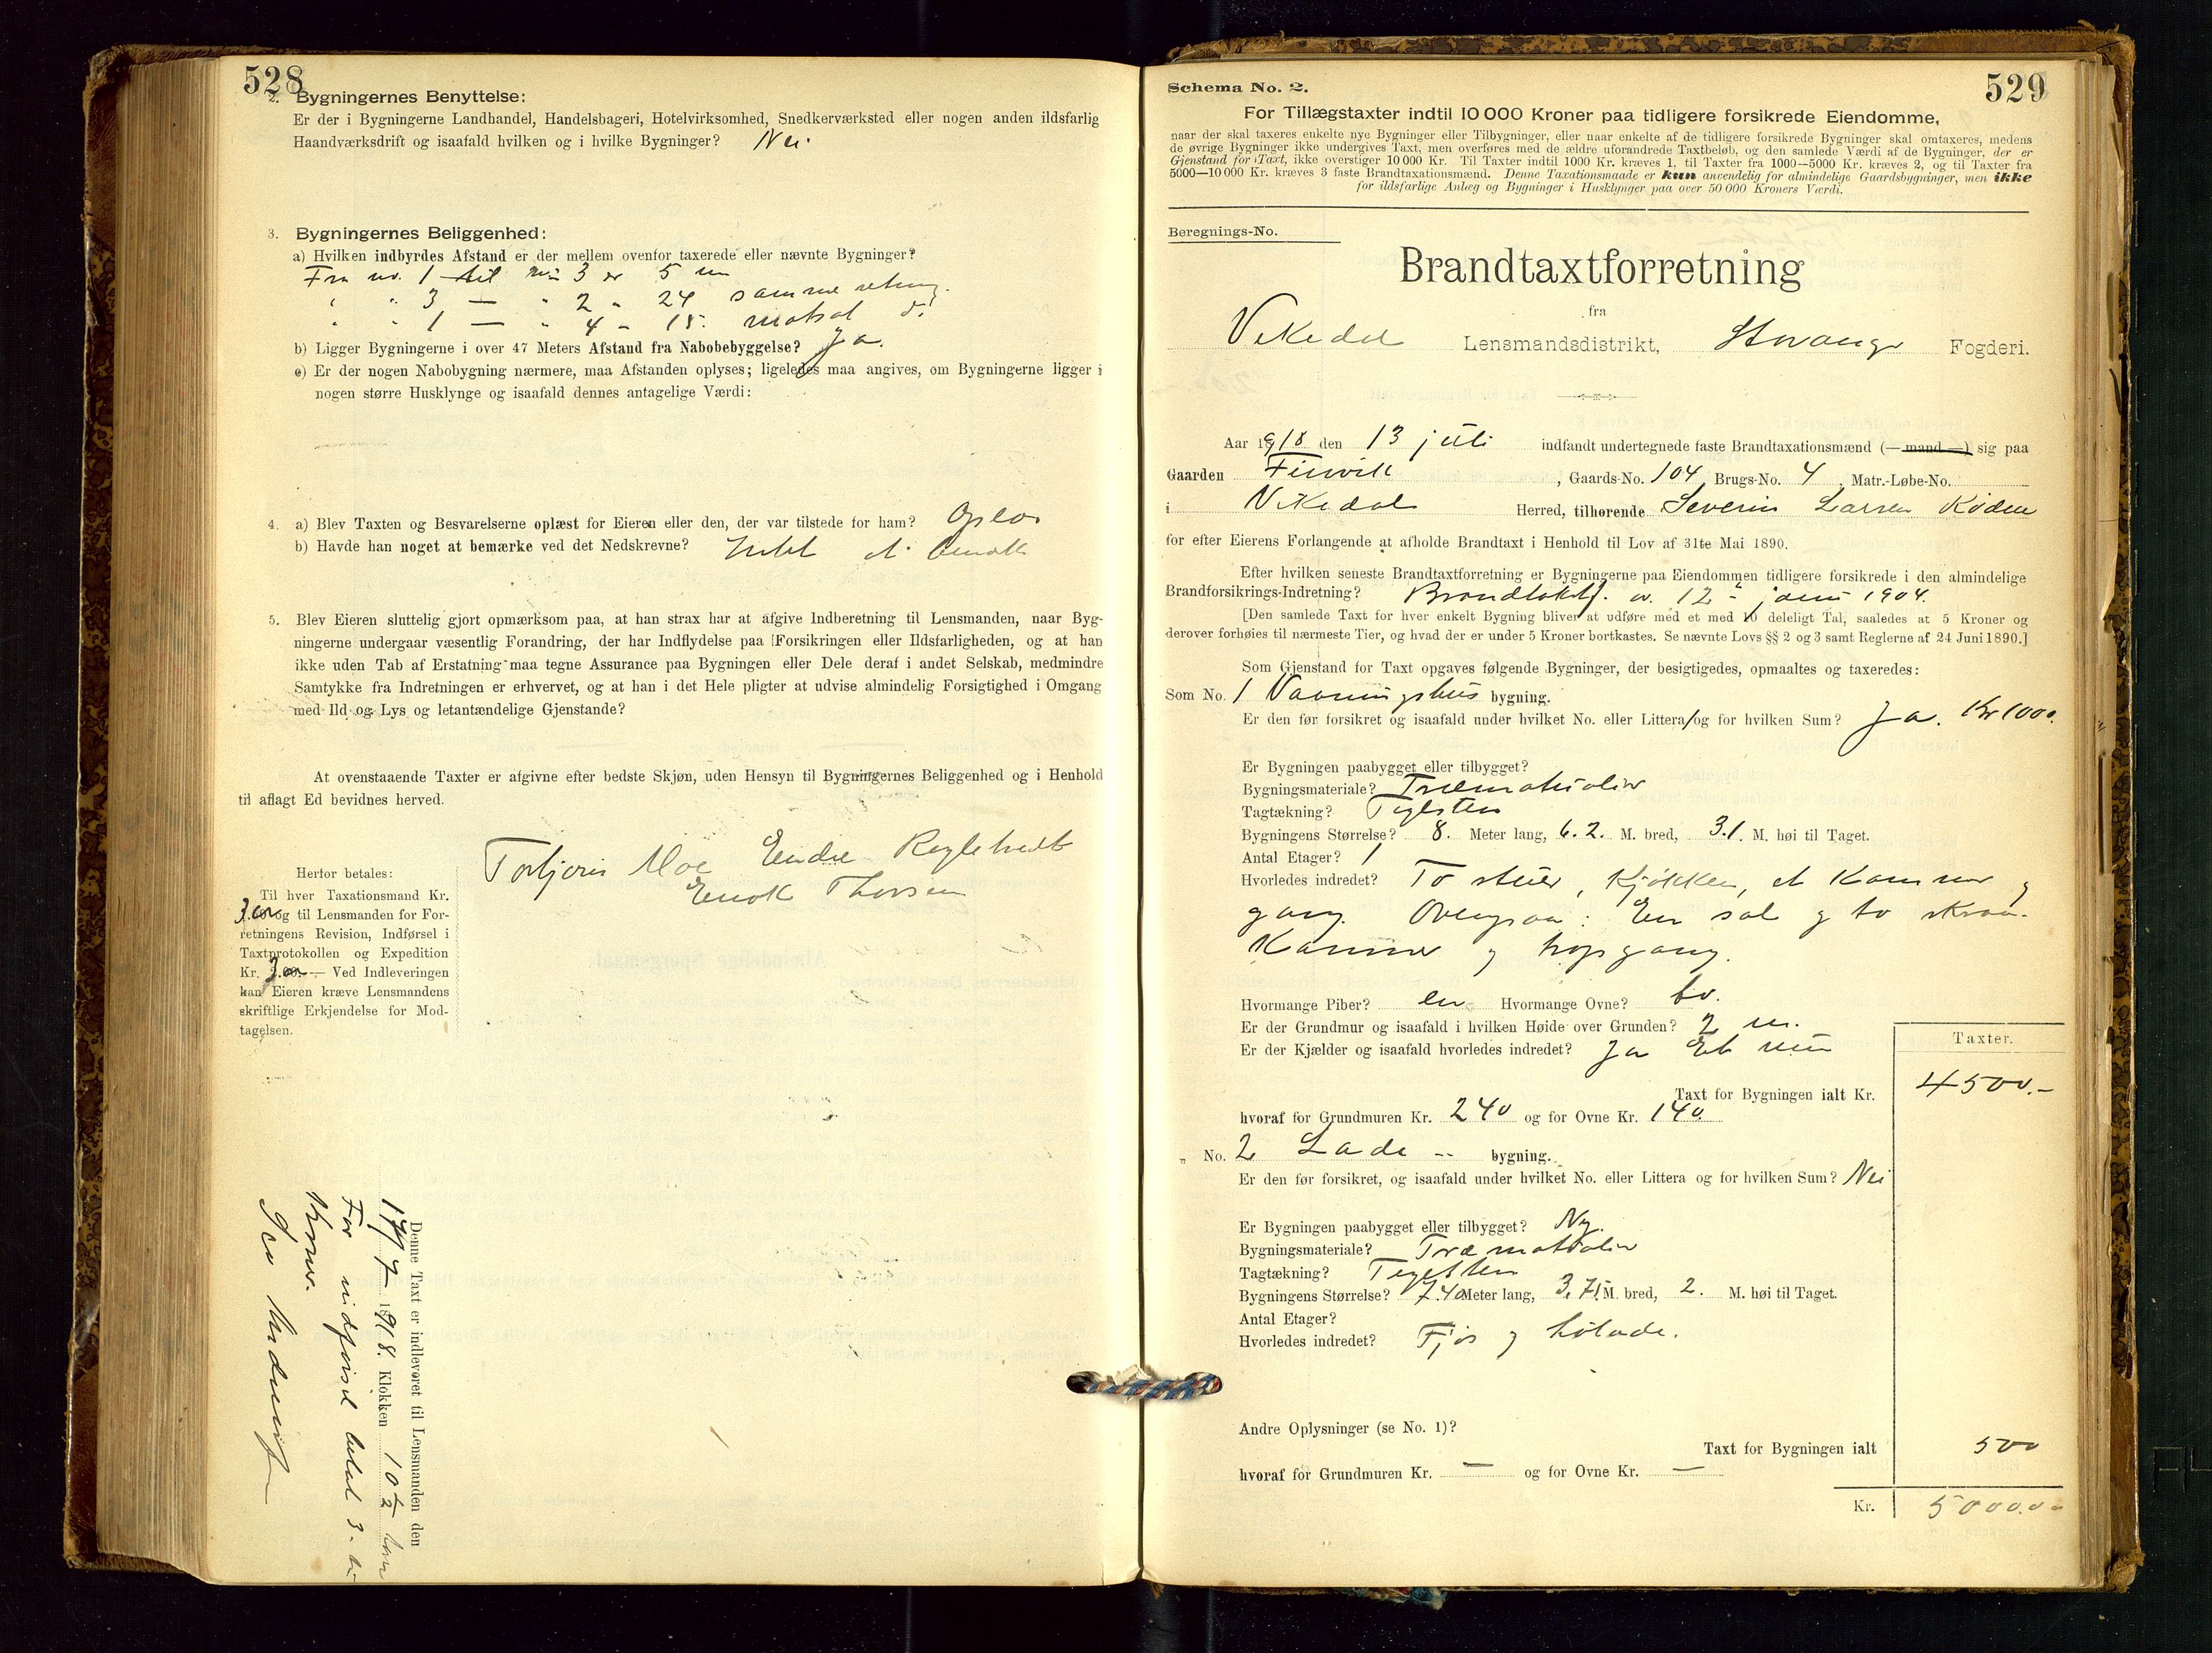 528
2. Bygningernes Benyttelse:
Er der i Bygningerne Landhandel, Handelsbageri, Hotelvirksomhed, Snedkerværksted eller nogen anden ildsfarlig
Haandværksdrift og isaafald hvilken og i hvilke Bygninger? Nei.
3. Bygningernes Beliggenhed:
a) Hvilken indbyrdes Afstand er der mellem ovenfor taxerede eller nævnte Bygninger?
Fra nr. 1 til nr. 3 er 5 m
" " 3 — " 2 " 24 samme retning.
" " 1 — " 4 " 15. motsat d:
b) Ligger Bygningerne i over 47 Meters Afstand fra Nabobebyggelse? Ja.
c) Er der nogen Nabobygning nærmere, maa Afstanden oplyses; ligeledes maa angives, om Bygningerne ligger i
nogen større Husklynge og isaafald dennes antagelige Værdi:
4. a) Blev Taxten og Besvarelserne oplæst for Eieren eller den, der var tilstede for ham? Oplæs
b) Havde han noget at bemærke ved det Nedskrevne? Intet at bemærke
5. Blev Eieren sluttelig gjort opmærksom paa, at han strax har at afgive Indberetning til Lensmanden, naar Byg-
ningerne undergaar væsentlig Forandring, der har Indflydelse paa Forsikringen eller Ildsfarligheden, og at han
ikke uden Tab af Erstatning maa tegne Assurance paa Bygningen eller Dele deraf i andet Selskab, medmindre
Samtykke fra Indretningen er erhvervet, og at han i det Hele pligter at udvise almindelig Forsigtighed i Omgang
med Ild og Lys og letantændelige Gjenstande?
At ovenstaaende Taxter er afgivne efter bedste Skjøn, uden Hensyn til Bygningernes Beliggenhed og i Henhold
til aflagt Ed bevidnes herved.
Torbjørn Moe Endre
Enok Thorsen
Herfor betales:
Til hver Taxationsmand Kr.
3.00 og til Lensmanden for For-
retningens Revision, Indførsel i
Taxtprotokollen og Expedition
Kr. 3.00 — Ved Indleveringen
kan Eieren kræve Lensmandens
skriftlige Erkjendelse for Mod-
tagelsen.
Denne Taxt er indleveret til Lensmanden den
17/7 1918. Klokken 10 1/2
For indførsel betalt 3-
529
Schema No. 2.
For Tillægstaxter indtil 10 000 Kroner paa tidligere forsikrede Eiendomme,
naar der skal taxeres enkelte nye Bygninger eller Tilbygninger, eller naar enkelte af de tidligere forsikrede Bygninger skal omtaxeres, medens
de øvrige Bygninger ikke undergives Taxt, men overføres med de ældre uforandrede Taxtbeløb, og den samlede Værdi af de Bygninger, der er
Gjenstand for Taxt, ikke overstiger 10 000 Kr. Til Taxter indtil 1000 Kr. kræves 1, til Taxter fra 1000—5000 Kr. kræves 2, og til Taxter fra
5000—10 000 Kr. kræves 3 faste Brandtaxationsmænd. Denne Taxationsmaade er kun anvendelig for almindelige Gaardsbygninger, men ikke
for ildsfarlige Anlæg og Bygninger i Husklynger paa over 50 000 Kroners Værdi.
Beregnings-No.
Brandtaxtforretning
fra
Vikedal Lensmandsdistrikt, Stavanger Fogderi.
Aar 1918 den 13 juli indfandt undertegnede faste Brandtaxationsmænd (—mand—) sig paa
Gaarden Finvik, Gaards-No. 104, Brugs-No. 4, Matr.-Løbe-No.
i Vikedal Herred, tilhørende Severin Larsen
for efter Eierens Forlangende at afholde Brandtaxt i Henhold til Lov af 31te Mai 1890.
Efter hvilken seneste Brandtaxtforretning er Bygningerne paa Eiendommen tidligere forsikrede i den almindelige
Brandforsikrings-Indretning? Brandtakstf. av 12 1904.
[Den samlede Taxt for hver enkelt Bygning bliver at udføre med et med 10 deleligt Tal, saaledes at 5 Kroner og
derover forhøies til nærmeste Tier, og hvad der er under 5 Kroner bortkastes. Se nævnte Lovs §§ 2 og 3 samt Reglerne af 24 Juni 1890.]
Som Gjenstand for Taxt opgaves følgende Bygninger, der besigtigedes, opmaaltes og taxeredes:
Som No. 1 Vaaningshus bygning.
Er den før forsikret og isaafald under hvilket No. eller Littera og for hvilken Sum? Ja. Kr 1000.
Er Bygningen paabygget eller tilbygget?
Bygningsmateriale? Træmaterialier
Tagtækning? Teglsten
Bygningens Størrelse? 8. Meter lang, 6.2. M. bred, 3.1. M. høi til Taget.
Antal Etager? 1
Hvorledes indredet? To stuer, Kjøkken, et Kammer og
gang. Ovenpaa: En sal og to skraa-
Kammer og trapgang.
Hvormange Piber? en Hvormange Ovne? to.
Er der Grundmur og isaafald i hvilken Høide over Grunden? 2 m.
Er der Kjælder og isaafald hvorledes indredet? Ja Et rum
Taxter.
Taxt for Bygningen ialt Kr. 4500.-
hvoraf for Grundmuren Kr. 240 og for Ovne Kr. 140.
" No. 2 Lade -- bygning.
Er den før forsikret, og isaafald under hvilket No. eller Littera og for hvilken Sum? Nei
Er Bygningen paabygget eller tilbygget? Ny.
Bygningsmateriale? Træmaterialier
Tagtækning? Teglsten
Bygningens Størrelse? 7.40 Meter lang, 3.75 M. bred, 2. M. høi til Taget.
Antal Etager?
Hvorledes indredet? Fjøs og hølade.
Andre Oplysninger (se No. 1)?
Taxt for Bygningen ialt 500
hvoraf for Grundmuren Kr. — og for Ovne Kr. —
Kr. 5000.00